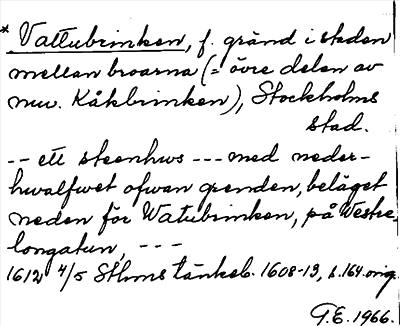 * Vattubrinken, f. gränd i staden
mellan broarna (= övre delen av
nuv. Kåkbrinken), Stockholms
stad.
-- ett steenhws --- med neder-
hwalfwet ofwan grenden, beläget
neden för Watubrinken, på Westre
longatun, ---
1612 4/5 Sthms tänkeb. 1608-13, s. 164 orig.
G.E. 1966.